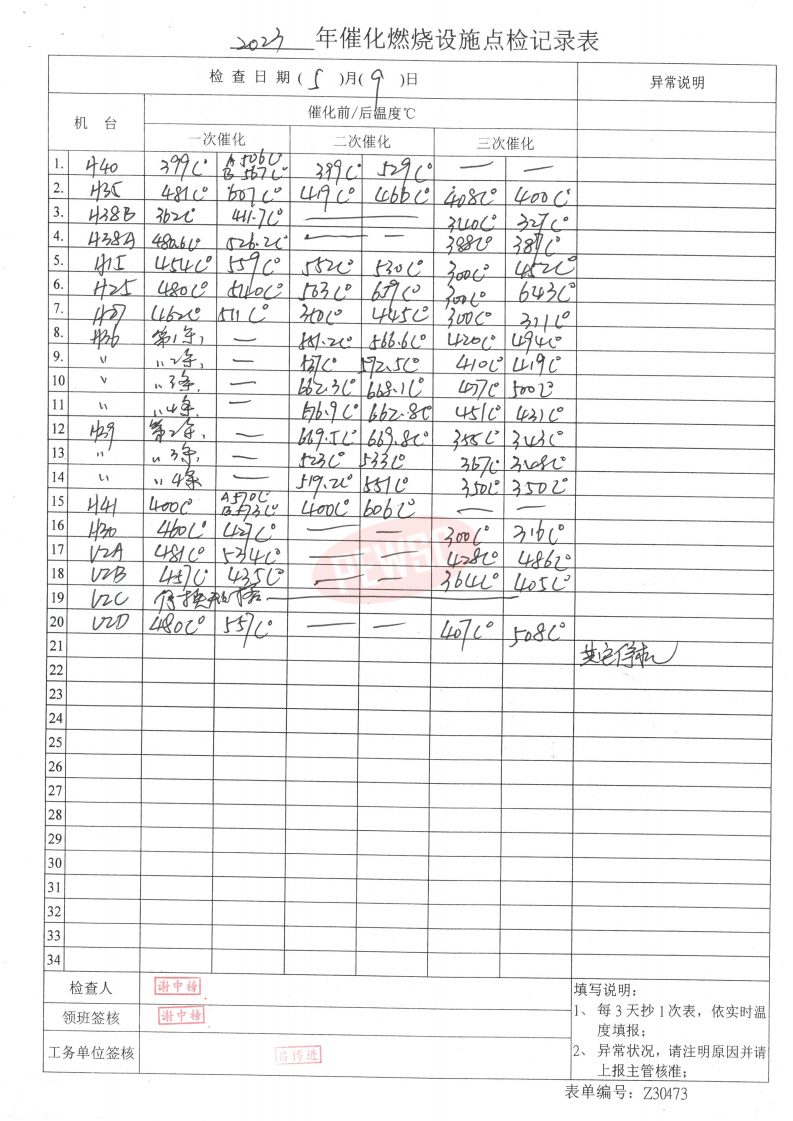 2023 年催化燃烧设施点检记录表
检查日期(5)月(9)日 异常说明
机台 催化前/后温度℃
一次催化 二次催化 三次催化
1. H40 399C° A 506C° B 567C° 399C° 529C° — —
2. H35 481C° 607C° 419C° 466C° 408C° 400C°
3. H38B 362C° 411.7C° — 340C° 327C°
4. H38A 480.6C° 526.2C° — — 388C° 387C°
5. H15 454C° 559C° 552C° 530C° 300C° 452C°
6. H25 480C° 540C° 503C° 659C° 300C° 643C°
7. H27 462C° 511C° 350C° 445C° 300C° 371C°
8. H36 第1条, — 551.2C° 566.6C° 420C° 494C°
9. 〃 〃2条, — 537C° 572.5C° 410C° 419C°
10 〃 〃3条, — 662.3C° 668.1C° 437C° 500C°
11 〃 〃4条, — 676.9C° 662.8C° 451C° 431C°
12 H39 第2条, — 669.5C° 669.8C° 355C° 343C°
13 〃 〃3条, — 523C° 533C° 367C° 348C°
14 〃 〃4条 — 519.2C° 551C° 350C° 350C°
15 H41 400C° A 570C° B 573C° 400C° 606C° — —
16 H30 460C° 427C° — — 300C° 316C°
17 V2A 481C° 534C° — — 428C° 486C°
18 V2B 457C° 435C° — — 364C° 405C°
19 V2C 停
20 V2D 480C° 557C° — — 407C° 508C°
21 其它停机
22
23
24
25
26
27
28
29
30
31
32
33
34
PEWSC
检查人 谢中榜
领班签核 谢中榜
工务单位签核 吕博进
填写说明：
1、每3天抄1次表，依实时温
度填报；
2、异常状况，请注明原因并请
上报主管核准；
表单编号：Z30473